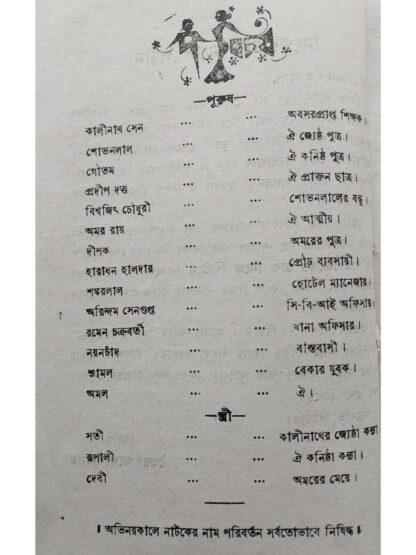 পরিচয়
—পুরুষ—
কালীনাথ সেন ... ... অবসরপ্রাপ্ত শিক্ষক।
শোভনলাল ... ... ঐ জ্যেষ্ঠ পুত্র।
গৌতম ... ... ঐ কনিষ্ঠ পুত্র।
প্রদীপ দত্ত ... ... ঐ প্রাক্তন ছাত্র।
বিশ্বজিৎ চৌধুরী ... ... শোভনলালের বন্ধু।
অমর রায় ... ... ঐ আত্মীয়।
দীপক ... ... অমরের পুত্র।
হারাধন হালদার ... ... প্রৌঢ় ব্যবসায়ী।
শঙ্করলাল ... ... হোটেল ম্যানেজার।
অরিন্দম সেনগুপ্ত ... ... সি-বি-আই অফিসার।
রমেন চক্রবর্তী ... ... থানা অফিসার।
নয়নচাঁদ ... ... বাস্তবাসী।
শ্যামল ... ... বেকার যুবক।
অমল ... ... ঐ।
—স্ত্রী—
সতী ... ... কালীনাথের জ্যেষ্ঠা কন্যা।
রূপালী ... ... ঐ কনিষ্ঠা কন্যা।
দেবী ... ... অমরের মেয়ে।
। অভিনয়কালে নাটকের নাম পরিবর্তন সর্বতোভাবে নিষিদ্ধ।